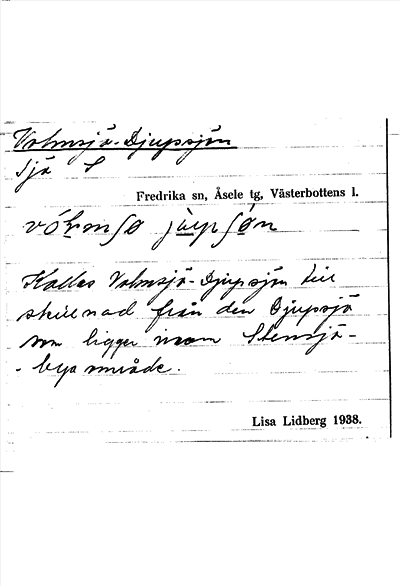 Volmsjö-Djupsjön
Sjö S
Fredrika sn, Åsele tg, Västerbottens l.
Kallas Volmsjö-Djupsjön till
skillnad från den Djupsjö
som ligger inom Stensjö-
- bys område.
Lisa Lidberg 1938.